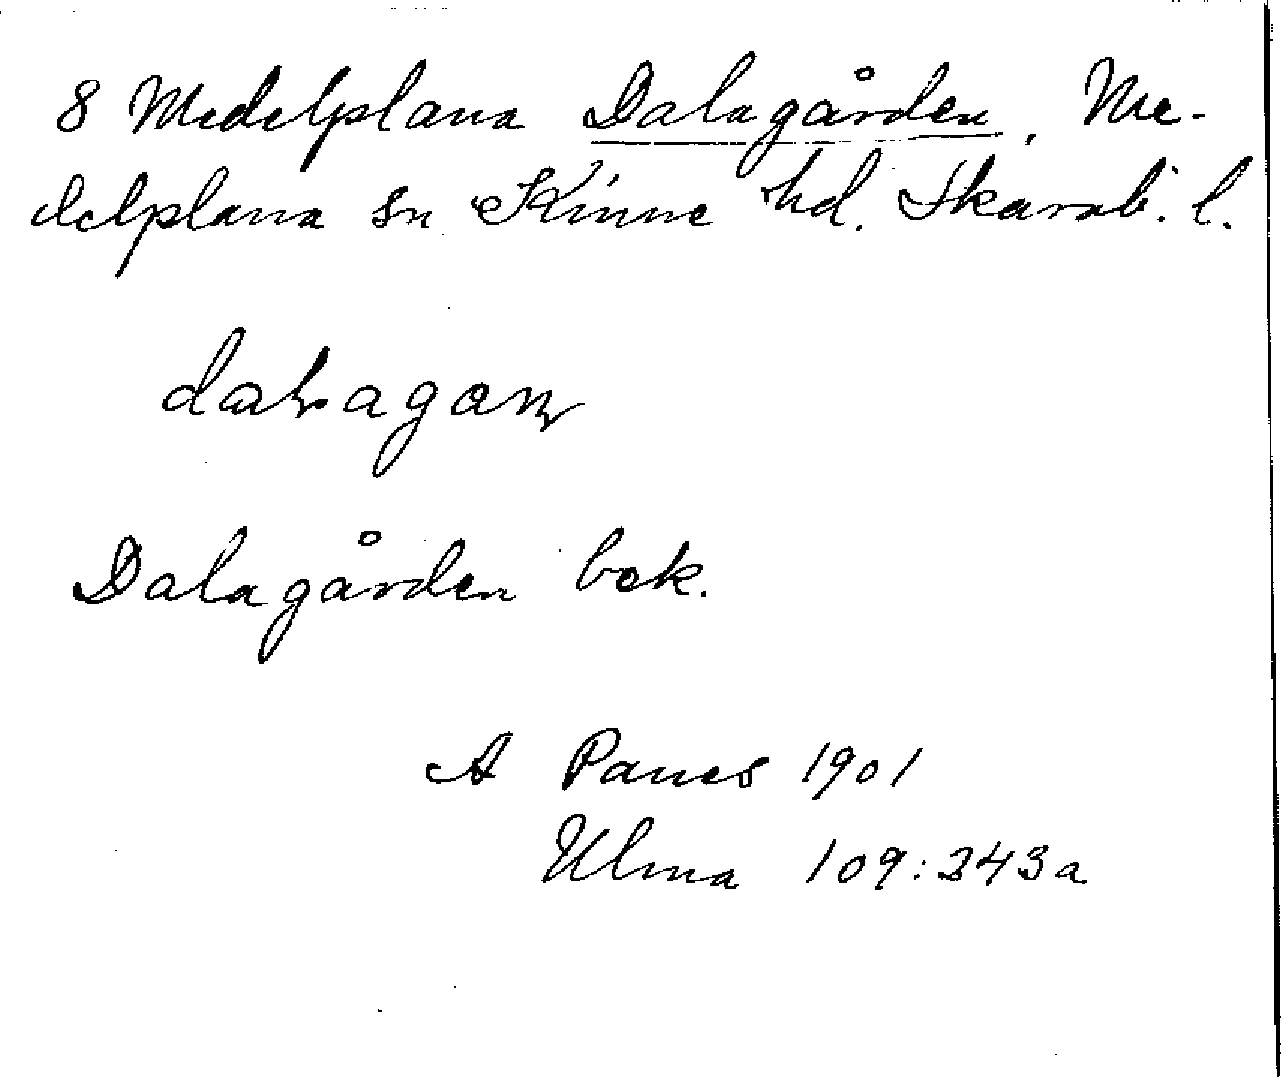 8 Medelplana Dalagården, Me-
delplana sn Kinne hd. Skarab. l.
Dalagården bek.
A Panes 1901
Ulma 109:343a